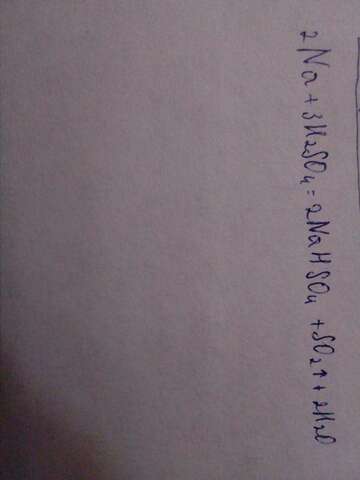 2Na + 3H₂SO₄ = 2NaHSO₄ + SO₂↑ + 2H₂O